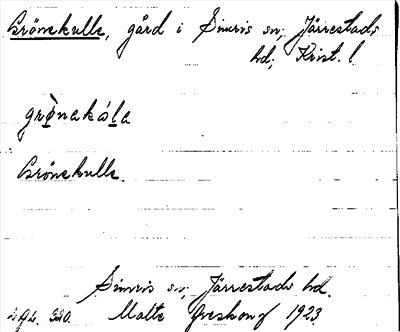 Grönekulle, gård i Simris sn; Järrestads
hd; Krist. l.
grø̀nakúla
Grönekulle.
Simris sn; Järrestads hd.
Malte 1923